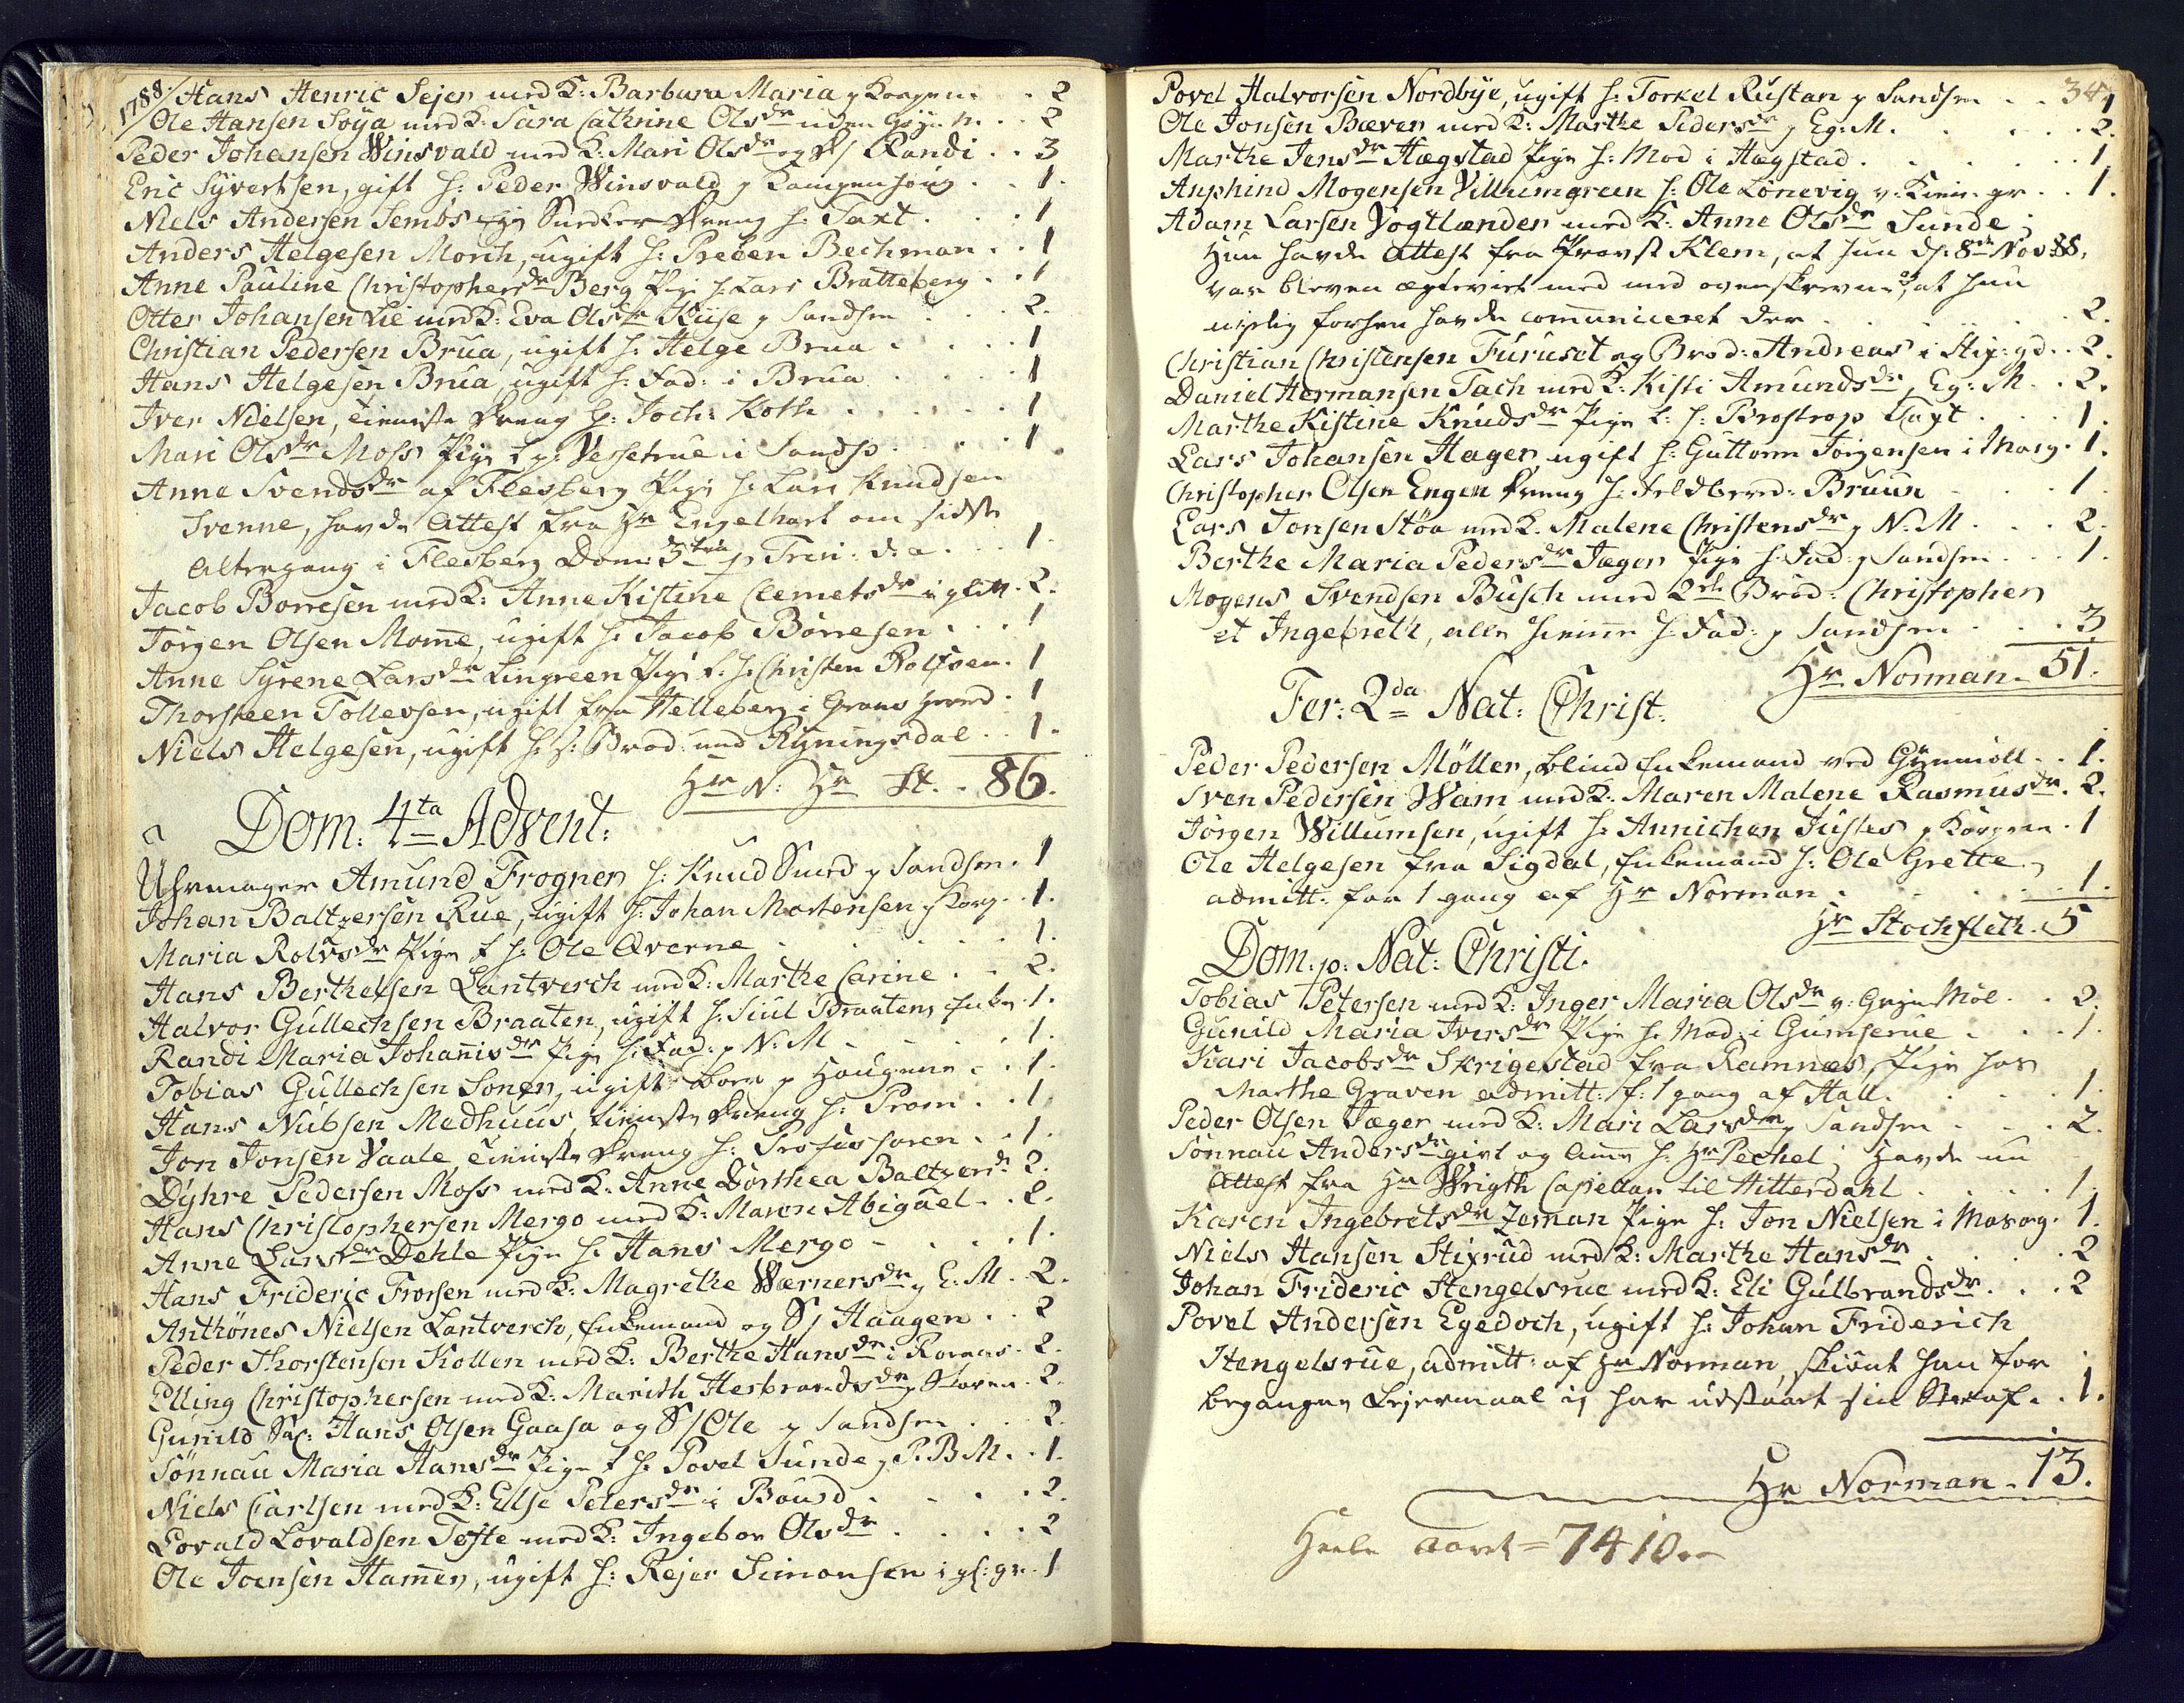 1788. Hans Henric Sejer med K: Barbara Maria p Korgen . 2
Ole Hansen Söya med K: Sara Cathrine Olsdr uden . . 2
Peder Johansen Winsvald med K: Mari Olsdr og S/ Randi . . 3
Eric Syvertsen, gift h: Peder Winsvald p . . 1.
Niels Andersen Sembs Snedker dreng h: Taxt . . . 1
Anders Helgesen Morch, ugift h: Preben Bechman . . 1
Anne Pauline Christophersdr Berg Pige h: Lars Bratteberg . . 1
Otter Johansen Lie med K: Eva Olsdr Kiise p Sandsen . . . 2.
Christian Pedersen Brua, ugift h: Helge Brua . . . 1
Hans Helgesen Brua, ugift h: Fad: i Brua . . . 1
Iver Nielsen, tieneste dreng h: Joch: Koth . . . . . 1
Mari Olsdr Moss Pige f p: Vessetrue i Sands . . . 1.
Anne Svendsdr af Flesberg Pige h: Lars Knudsen
Svenne, havde Attest fra Hr Engelhart om sidste
Altergang i Flesberg Dom: 3tia p Trin: d: a . . . 1.
Jacob Borresen med K: Anne Kistine Clemetsdr i . 2.
Jörgen Olsen Mome, ugift h: Jacob Börresen . . . 1
Anne Syrene Larsdr Lingreen Pige f. h: Christen Rolfsen . 1
Thorsteen Tollevsen, ugift fra Helleberg i Grans . 1
Niels Helgesen, ugift h: s: Brod: med Ryningsdal . . 1.
Hr N: Hr St. . 86.
Dom: 4ta Advent:
Uhrmager Amund Frogner h: Knud Smed p Sandsen . 1
Johan Baltzersen Rue, ugift h: Johan Mortensen p Korg . . 1.
Maria Rolvsdr Pige f h: Ole Qverne . . . . . 1.
Hans Berthelsen Lantverch med K: Marthe Carine . . 2.
Halvor Gullechsen Braaten, ugift h: Siul Braatens Enke . 1.
Randi Maria Johannisdr Pige h: Fad: p N: M . . . . 1.
Tobias Gullechsen Sonen, ugift boer p Haugene . . 1.
Hans Nubsen Medhuus, tieneste dreng h: Prom . . 1.
Jon Jonsen Vaale, tieneste dreng h: Professoren . . 1.
Dyhre Pedersen Moss med K: Anne Dorthea Baltzerdr 2.
Hans Christophersen Mergo med K: Maren Abigael . . 2.
Anne Larsdr Dehle Pige h: Hans Mergo . . . . 1.
Hans Frideric Frorsen med K: Magrethe Wærnersdr p E: M . 2.
Anthönes Nielsen Lantverch, Enkemand og S/ Haagen . . 2
Peder Thorstensen Kollen med K: Berthe Hansdr i . 2.
Elling Christophersen med K: Marith Herbrandsdr p . 2.
Gunild Sal: Hans Olsen Gaasa og S/ Ole p Sandsen . . 2.
Sönnau Maria Hansdr Pige f h: Povel Sunde p P: B M . . 1.
Niels Carlsen med K: Else Petersdr i Bousd . . . . 2.
Lovald Lovaldsen Tofte med K: Ingebor Olsdr . . . . 2
Ole Joensen Hamer, ugift h: Rejer Simonsen i gl: gr . 1
34
Povel Halvorsen Nordbye, ugift h: Torkel Rustan p Sandsen . . 1
Ole Jonsen Bæver med K: Marthe Pedersdr p Eg: M . . . . 2.
Marthe Jensdr Hægstad Pige h: Mod i Hægstad . . . . . 1
Anphind Mogensen Villumgreen h: Ole Lonevig . . 1.
Adam Larsen Vogtlænder med K: Anne Olsdr Sunde,
Hun havde Attest fra Provst Klem, at hun d: 8de Nov 88.
var bleven ægteviet med med ovenskrevne, at hun
forhen havde communiceret der . . . 2.
Christian Christensen Furuset og Brod: Andreas i . . 2.
Daniel Hermansen Tach med K: Kisti Amundsdr p Eg: M . 2.
Marthe Kistine Knudsdr Pige f: h: Brostrop Taxt . . . 1.
Lars Johansen Hager, ugift h: Guttorm Jörgensen i Marg . 1.
Christopher Olsen Engen dreng h: Feldbered: Bruun . . . 1.
Lars Jonsen Stöa med K. Malene Christensdr p N: M . . . 2.
Berthe Maria Pedersdr Jæger Pige h: Fad: p Sandsen . . . 1.
Mogens Svendsen Busch med 2de Bröd: Christopher
et Ingebreth, alle hieme h: Fad: p Sandsen . . . 3
Hr Norman . 51.
Fer: 2da Nat: Christ:
Peder Pedersen Möller, blind Enkemand ved . . 1.
Sven Pedersen Wam med K: Maren Malene Rasmusdr . 2.
Jörgen Willumsen, ugift h: Annichen Justes p Korgen . 1
Ole Helgesen fra Sigdal, Enkemand h: Ole Grette,
admitt: for 1 gang af Hr Norman . . . . . 1.
Hr Stochfleth . 5
Dom: p: Nat: Christi.
Tobias Petersen med K: Inger Maria Olsdr v: Möl . . 2.
Gunild Maria Iversdr Pige h: Mod: i Gumserue . . . 1.
Kari Jacobsdr Skrigestad fra Ramnes, Pige hos
Marthe Graven admitt: f: 1 gang af Hall . . . . 1.
Peder Olsen Jæger med K: Mari Larsdr p Sandsen . . . 2.
Sönnau Andersdr givt og Ame h: Hr Pechel; Havde nu
Attest fra Hr Wrigth Capellan til Hitterdahl . . . . 1.
Karen Ingebretsdr Zeman Pige h: Jon Nielsen i . 1.
Niels Hansen Stixrud med K: Marthe Hansdr . . . 2
Johan Frideric Stengelsrue med K: Eli Gulbrandsdr . . . 2
Povel Andersen Egedoch, ugift h: Johan Friderich
Stengelsrue, admitt: af Hr Norman, skiönt han for
begangen Leyermaal ej har udstaaet sin Straf . . 1.
Hr Norman . 13.
Heele Aaret = 7410.